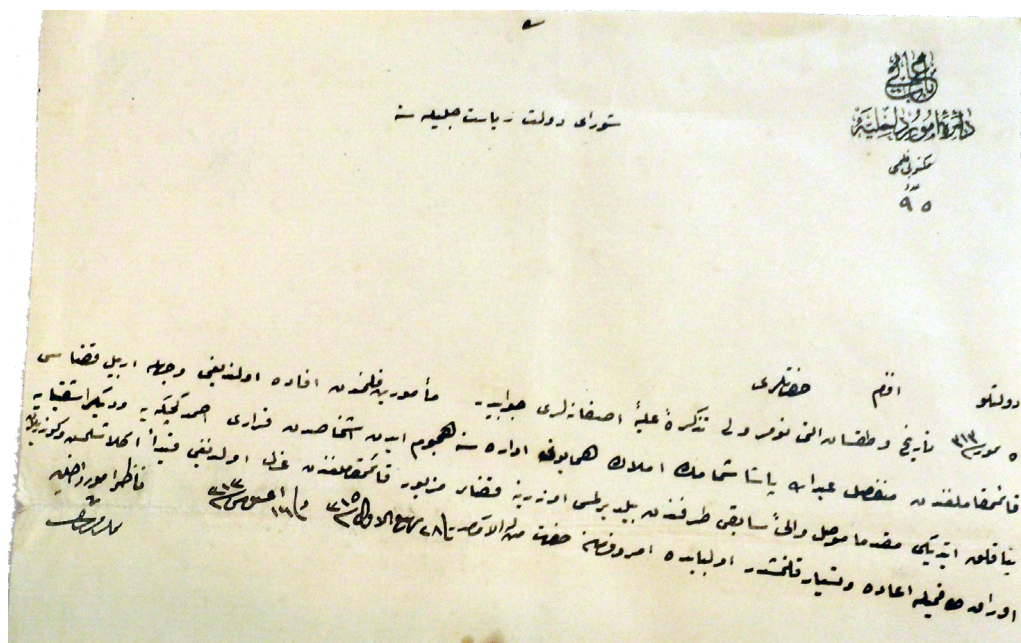 باب عالی
دائرۀ امور داخلیه
مكتوبی قلمی
عدد
٩٥
شورای دولت ریاست جلیله سنه
دولتلو افندم حضرتلری
٥ تموز ٣١٣ تاریخ و طقسان التی نومرولی تذكرۀ علیۀ اصفانه لری جوابیدر مأمورین قلمندن افاده اولندیغی وجهله اربیل قضاسی
قائمقاملغندن منفصل عبد الله پاشانك املاك همایون اداره سنه هجوم ایدن اشخاصدن فراری احمد و دیكر اشقیایه
یتاقلق ایتدیكی مقدما موصل والئ سابقی طرفندن بیلدیرلمسی اوزرینه قضاء مزبور قائمقاملغندن عزل اولندیغی قیداً اكلاشلمش
اوراق اعاده و تسیار قلنمشدر اولبابده امر و فرمان حضرت من له الامركدر فی ٢٨ ربیع الاول ٣١٥ و فی ١٦ اغستوس ٣١٣
ناظر امور داخلیه